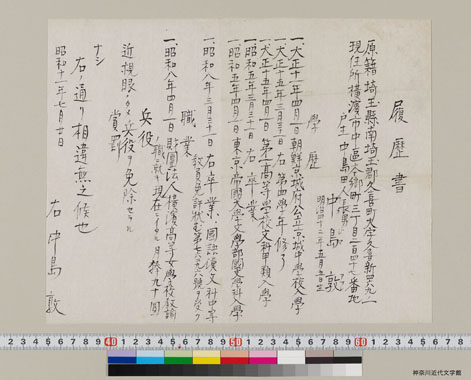 履歴書
原籍 埼玉縣南埼玉郡久喜町大字久喜新四九一
現住所 横濱市中區本郷町三丁目二四七番地
戸主 中島田人 長男
中島敦
明治四十二年五月五日生
学歴
一、大正十一年四月一日 朝鮮京城府公立京城中學校入學
一、大正十五年三月三十一日 右 第四學年修了
一、大正十五年四月一日 第一高等學校文科甲類入學
一、昭和五年三月三十一日 右 卒業
一、昭和五年四月一日 東京帝國大學文學部國文學科入學
一、昭和八年三月三十一日 右 卒業、國語漢文科中等
教員免許状
職業
一、昭和八年四月一日 財團法人横濱高等女學校教諭
現在ニ至ル 月俸九十圓
兵役
近視眼ノ 兵役ヲ免除セラル
賞罰
ナシ
右ノ通リ相違無之候也
昭和十一年七月廿日
右 中島敦
2 3 4 5 6 7 8 9 40 1 2 3 4 5 6 7 8 9 50 1 2 3 4 5 6 7 8 9 60 1 2 3 4 5 6 7 8
神奈川近代文学館